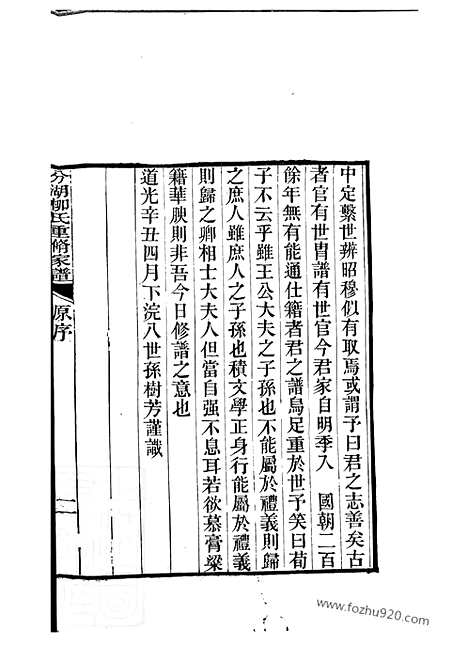 中定繫世辨昭穆似有取焉或謂予曰君之志善矣古
者官有世胄譜有世官今君家自明季入　國朝二百
餘年無有能通仕籍者君之譜烏足重於世予笑曰荀
子不云乎雖王公大夫之子孫也不能屬於禮義則歸
之庶人雖庶人之子孫也積文學正身行能屬於禮義
則歸之卿相士大夫人但當自强不息耳若欲慕膏粱
籍華腴則非吾今日修譜之意也
道光辛丑四月下浣八世孫樹芳謹識
分湖柳氏重脩家譜
原序
二
www.fozhu920.com